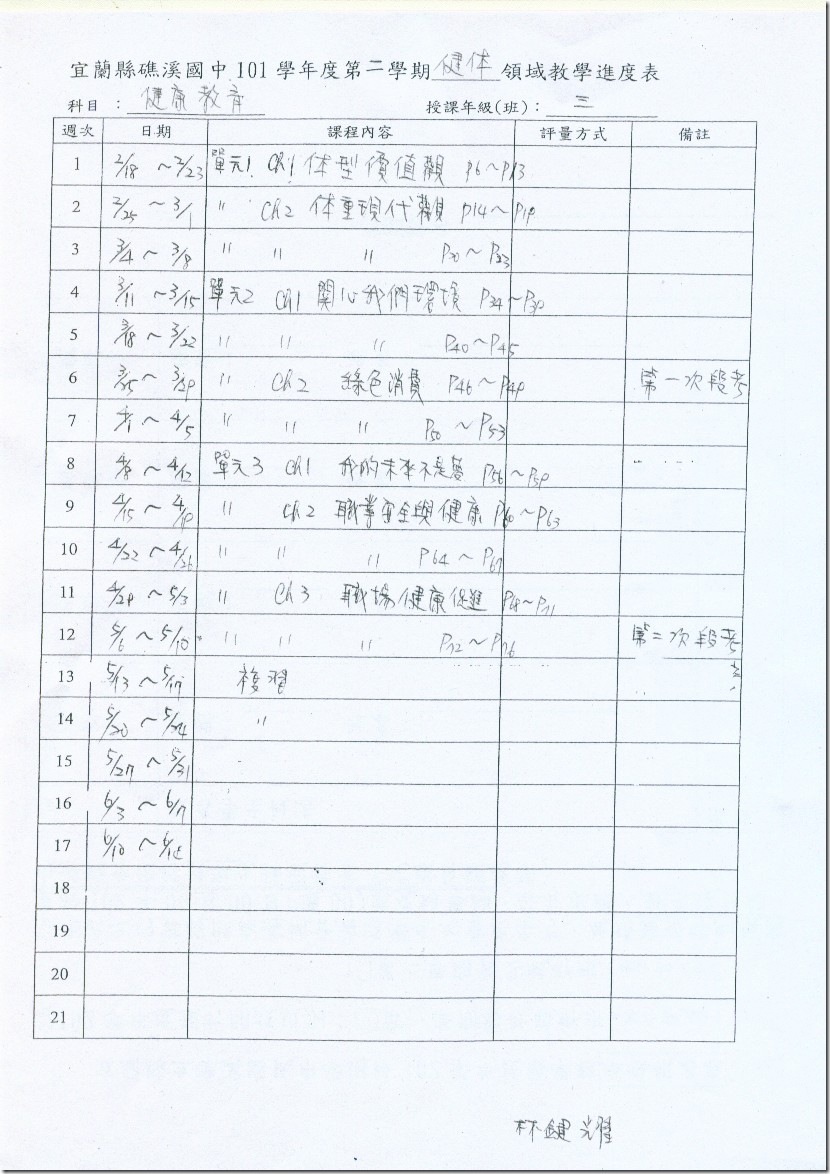 宜蘭縣礁溪國中101學年度第二學期健体領域教學進度表
科目：健康教育 授課年級(班)：三
週次 日期 課程內容 評量方式 備註
1 2/18～2/23 單元1 Ch1 体型價值觀 P6～P13
2 2/25～3/1 〃 Ch2 体重現代觀 P14～P19
3 3/4～3/8 〃 〃 〃 P20～P23
4 3/11～3/15 單元2 Ch1 関心我們環境 P34～P39
5 3/18～3/22 〃 〃 〃 P40～P45
6 3/25～3/29 〃 Ch2 綠色消費 P46～P49 第一次段考
7 4/1～4/5 〃 〃 〃 P50～P53
8 4/8～4/12 單元3 Ch1 我的未來不是夢 P56～P59
9 4/15～4/19 〃 Ch2 職業安全與健康 P60～P63
10 4/22～4/26 〃 〃 〃 P64～P67
11 4/29～5/3 〃 Ch3 職場健康促進 P68～P71
12 5/6～5/10 〃 〃 〃 P72～P76 第二次段考
13 5/13～5/17 複習
14 5/20～5/24 〃
15 5/27～5/31
16 6/3～6/7
17 6/10～6/14
18
19
20
21
林鍵耀